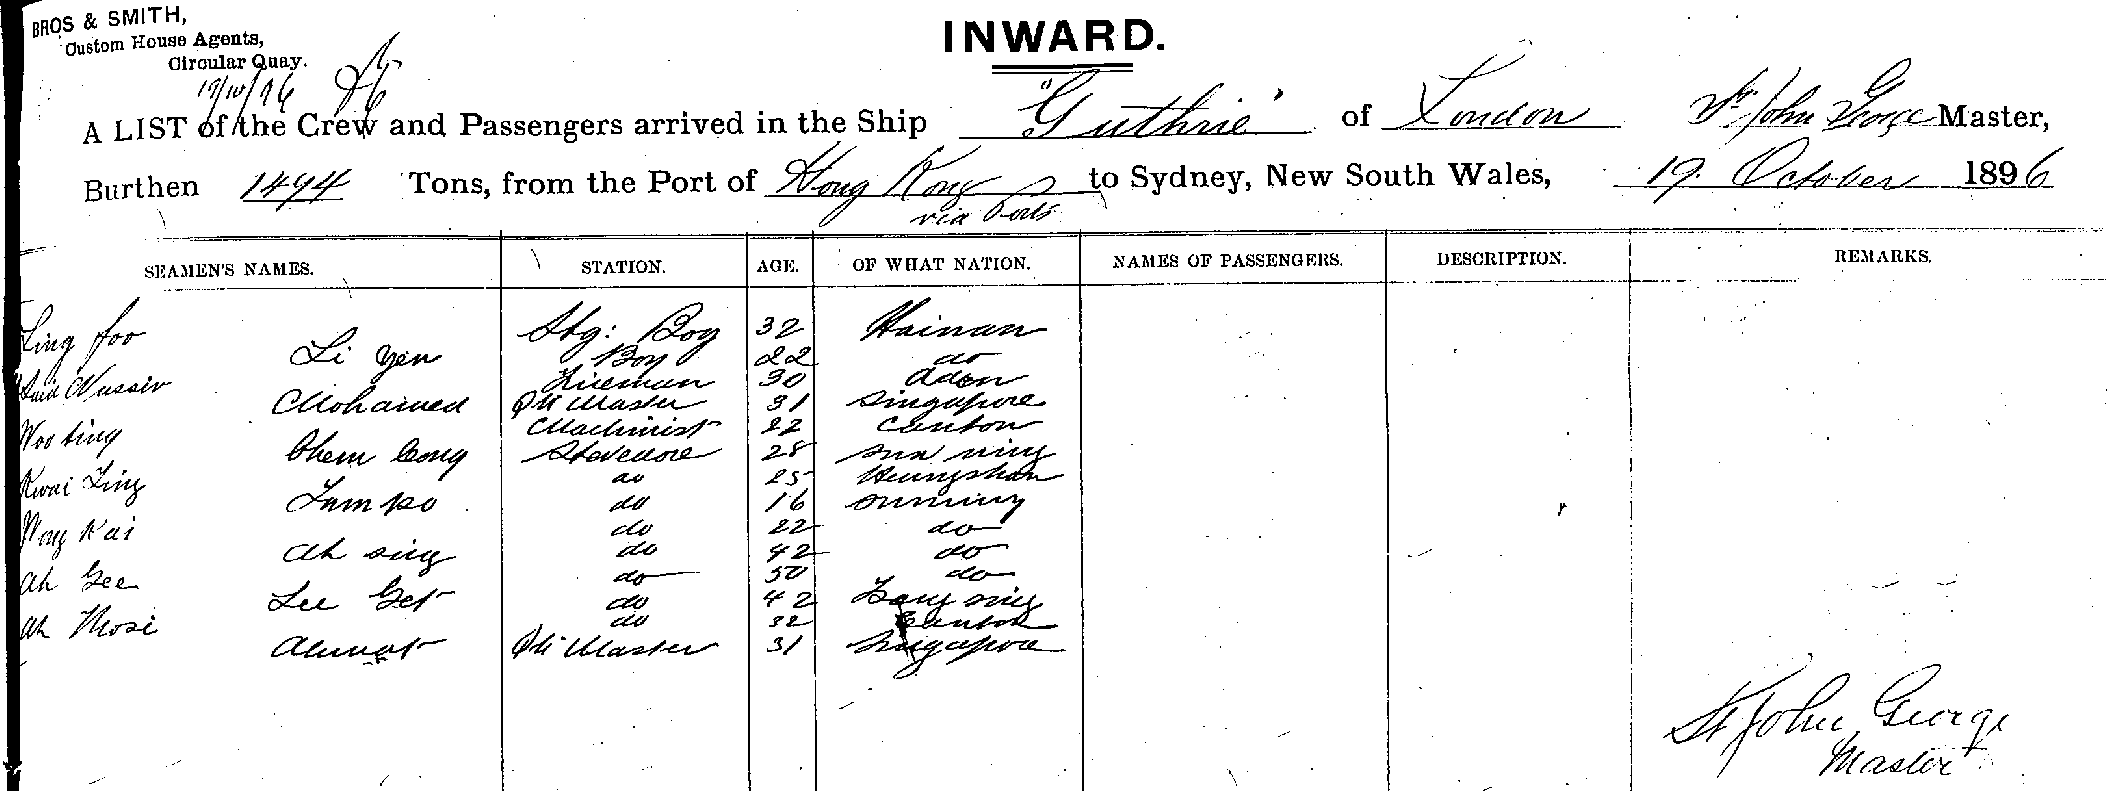 BROS & SMITH,
Custom House Agents,
Circular Quay.
INWARD.
19/10/96
A LIST of the Crew and Passengers arrived in the Ship "Guthrie" of London St John George Master,
Burthen 1494 Tons, from the Port of Hong Kong to Sydney, New South Wales, 19 October 1896
via Ports
SEAMEN'S NAMES. STATION. AGE. OF WHAT NATION. NAMES OF PASSENGERS. DESCRIPTION. REMARKS.
Ling foo Stg: Boy 32 Hainan
Li Yen Boy 22 do
Nussir Fireman 30 Aden
Mohamed Qr Master 31 Singapore
Woo ting Machinist 22 Canton
Chem Cong Stevedore 28 sun ning
Kwai Ling do 25 Heungshan
Lam po do 16 sunning
Wong Kai do 22 do
Ah sing do 42 do
Ah Gee do 50 do
Lee Get do 42 ning
Ah Mosi do 32 Canton
Qr Master 31 Singapore
St John George
Master